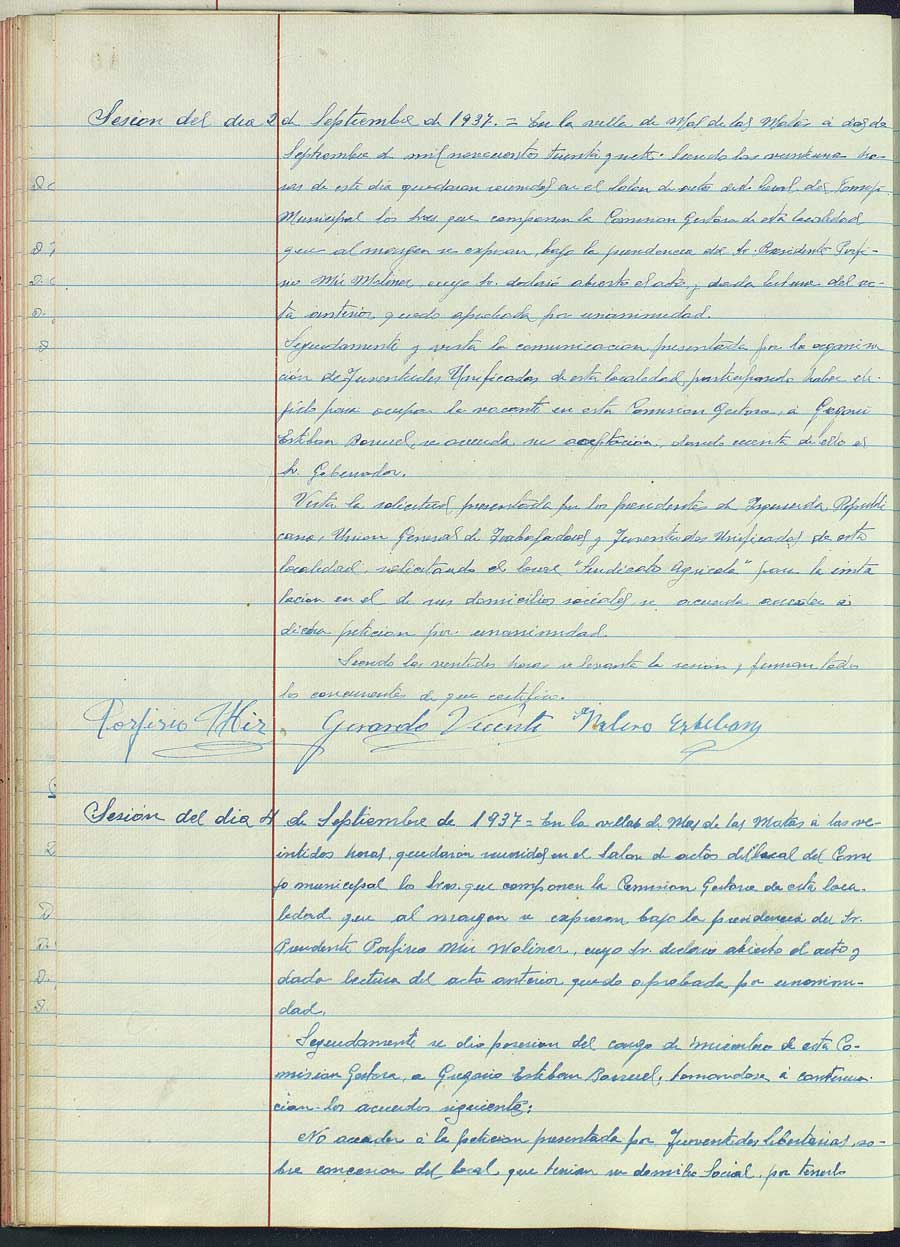 Sesion del dia 2 de Septiembre de 1937. = En la villa de Mas de las Matas a dos de
Septiembre de mil novecientos treinta y siete. Siendo las veintiuna ho-
ras de este dia quedaron reunidos en el Salon de actos del local del Consejo
Municipal los Sres. que componen la Comision Gestora de esta localidad
que al margen se expresan, bajo la presidencia del Sr. Presidente Porfi-
rio Mir Moliner, cuyo Sr. declaró abierto el acto, y dada lectura del ac-
ta anterior quedo aprobada por unanimidad.
Seguidamente y vista la comunicacion presentada por la organiza
ción de Juventudes Unificadas de esta localidad, participando haber ele-
gido para ocupar la vacante en esta Comision Gestora, a Gregorio
Esteban se acuerda su aceptación, dando cuenta de ello al
Sr. Gobernador.
Vista la solicitud presentada por los presidentes de Izquierda Republi
cana, Union General de Trabajadores y Juventudes Unificadas de esta
localidad, solicitando el local "Sindicato Agricola" para la insta
lacion en el de sus domicilios sociales se acuerda acceder a
dicha peticion por unanimidad.
Siendo las veintidos horas se levanta la sesión y firman todos
los concurrentes de que certifico.
Porfirio Mir Gerardo Vicente Valero Esteban
Sesión del dia 4 de Septiembre de 1937 = En la villa de Mas de las Matas a las ve-
intidos horas, quedaron reunidos en el Salon de actos del local del Conse
jo municipal los Sres. que componen la Comision Gestora de esta loca-
lidad que al margen se expresan bajo la presidencia del Sr.
Presidente Porfirio Mir Moliner, cuyo Sr. declaro abierto el acto y
dada lectura del acta anterior quedo aprobada por unanimi-
dad.
Seguidamente se dio posesion del cargo de miembro de esta Co-
mision Gestora, a Gregorio Esteban tomandose a continua-
cion los acuerdos siguiente:
No acceder a la peticion presentada por Juventudes libertarias, so-
bre concesion del local, que tenian su domicilio Social, por tenerlo